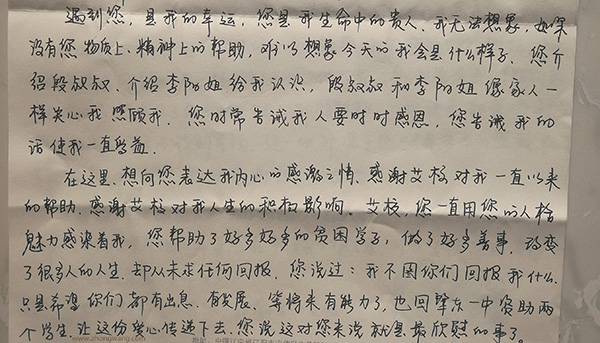 遇到您，是我的幸运，您是我生命中的贵人、我无法想象，如果
没有您物质上、精神上的帮助，难以想象今天的我会是什么样子。您介
绍段叔叔、介绍李阳姐给我认识，段叔叔和李阳姐像家人一
样关心我照顾我。您时常告诫我人要时时感恩，您告诫我的
话使我一直受益。
在这里、想向您表达我内心的感激之情、感谢艾校对我一直以来
的帮助、感谢艾校对我人生的积极影响。艾校、您一直用您的人格
魅力感染着我，您帮助了好多好多的贫困学子，做了好多善事，改变
了很多人的人生、却从未求任何回报。您说过：我不图你们回报我什么、
只是希望你们都有出息、有发展、等将来有能力了，也回肇东一中资助两
个学生、让这份爱心传递下去、您说这对您来说就是最欣慰的事了。
www.zhongwang.com